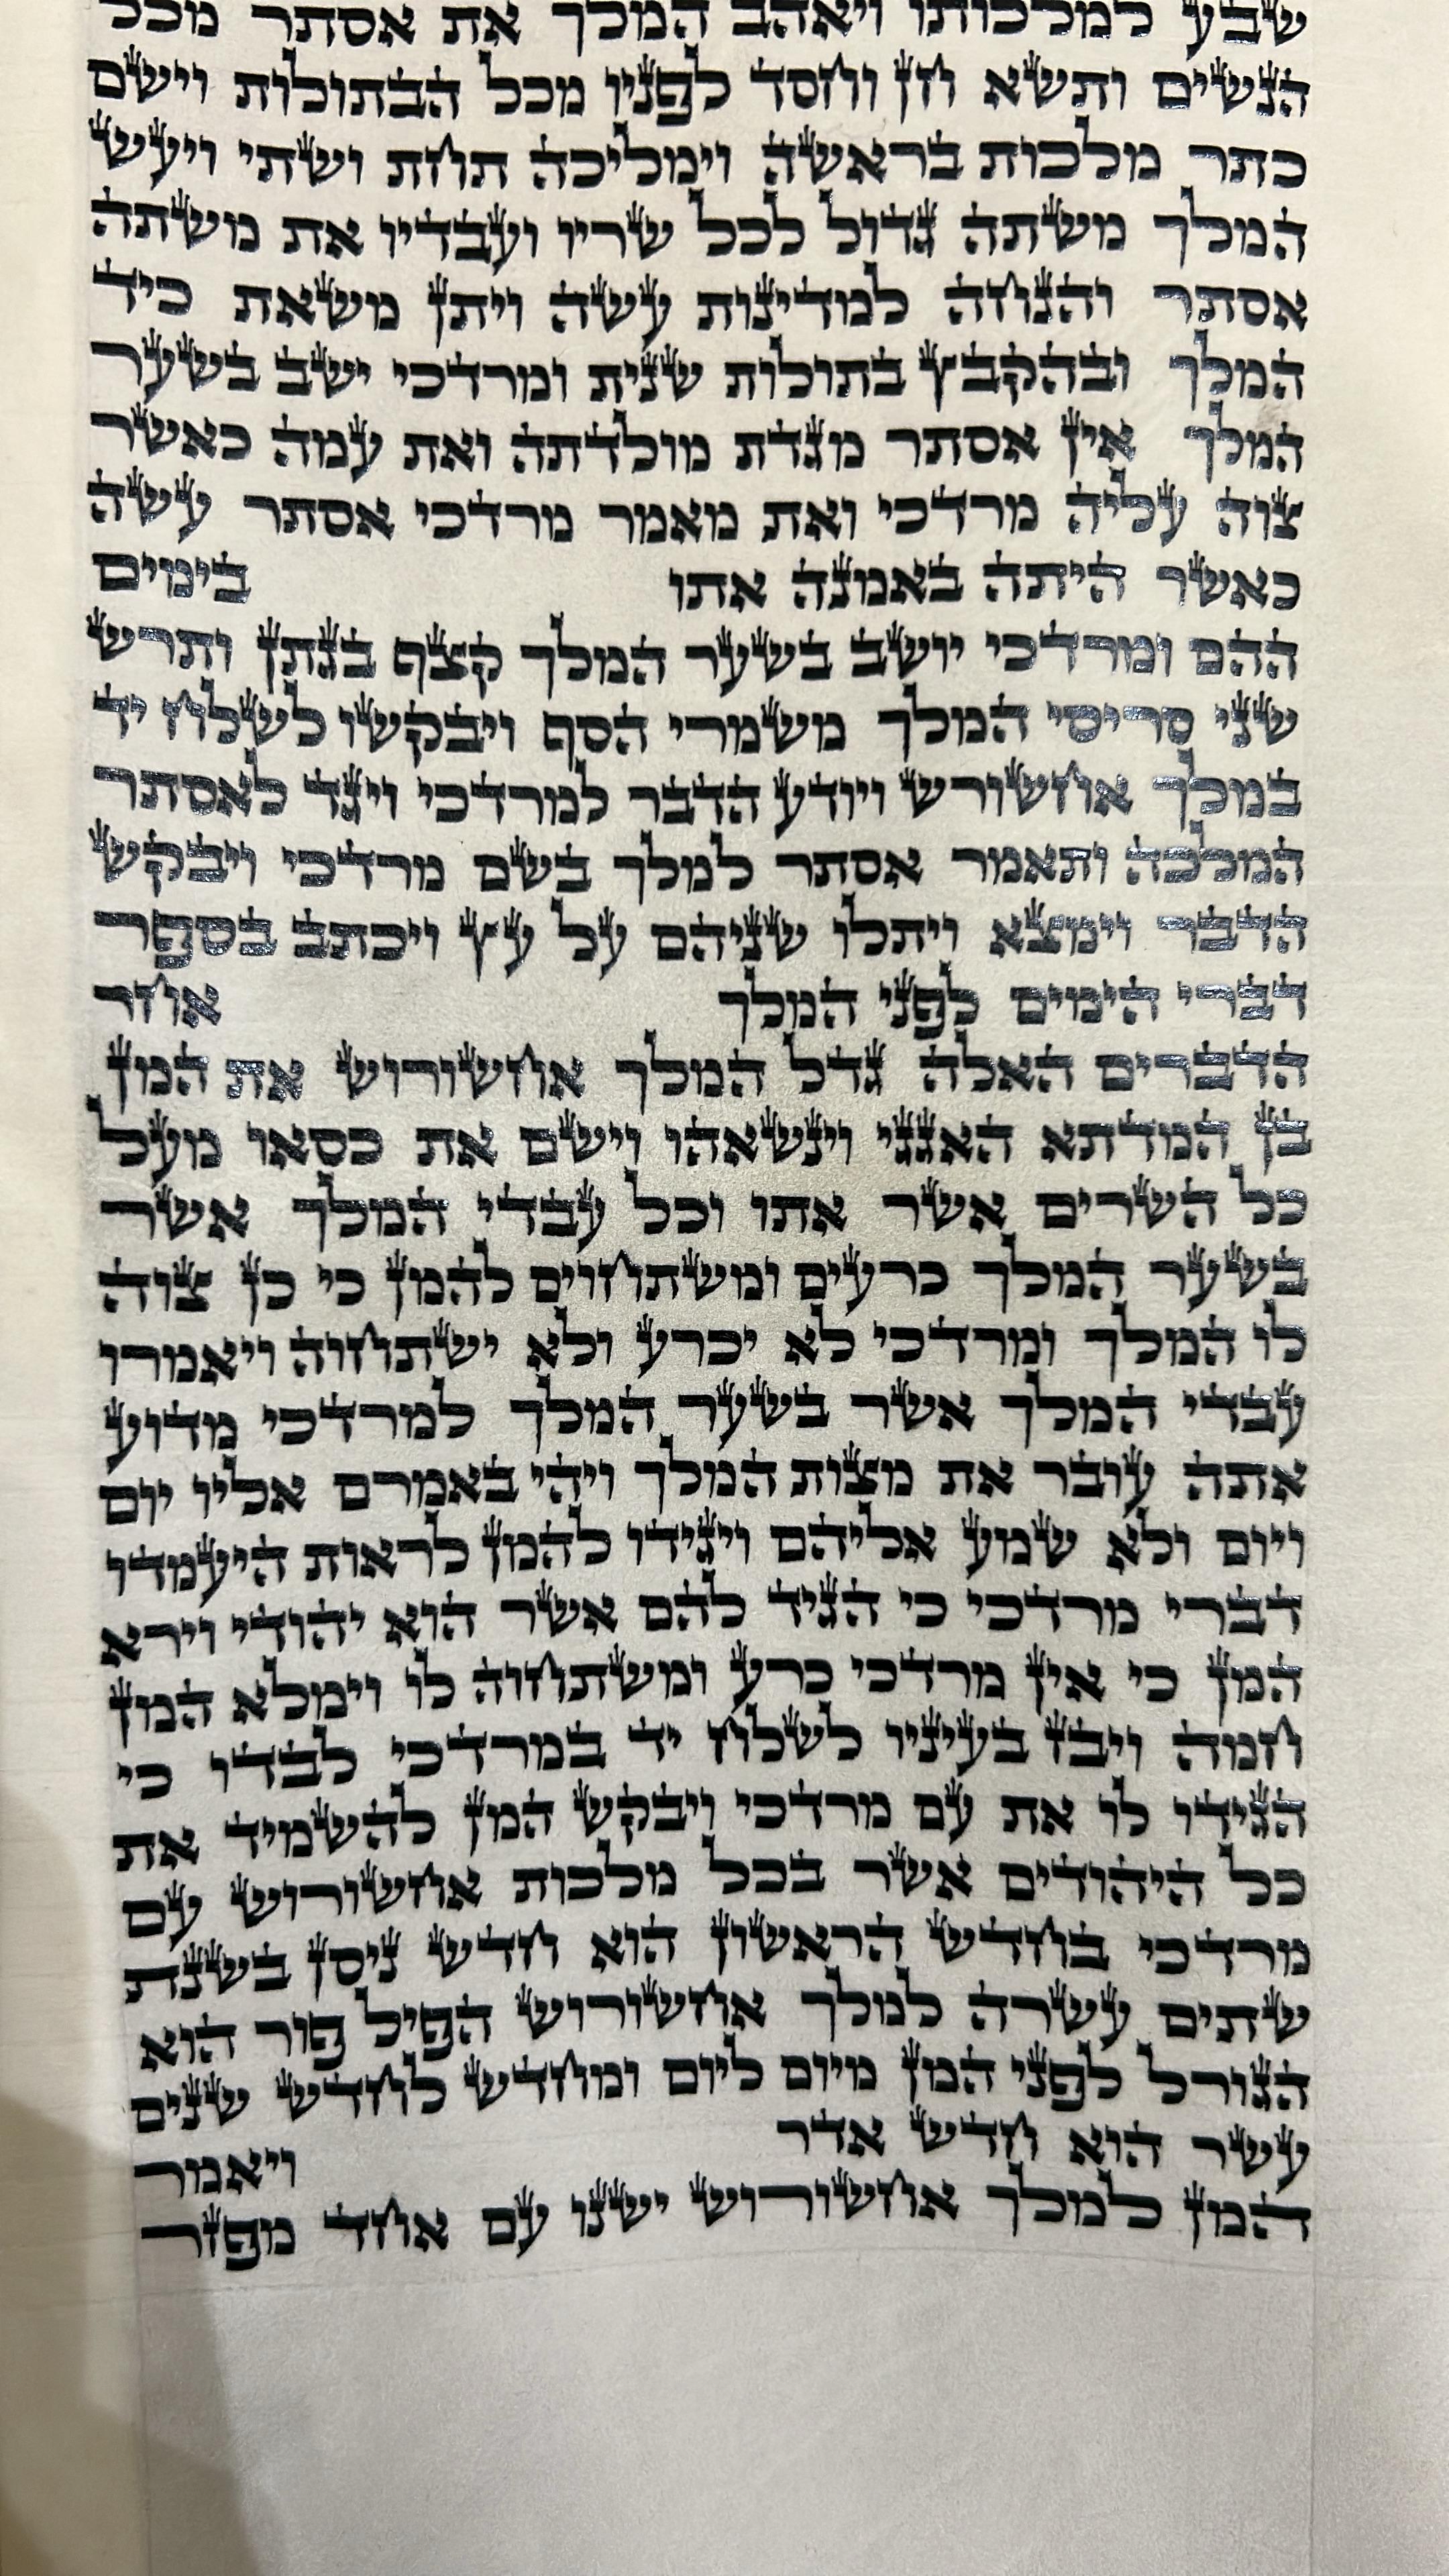 שבע למלכותו ויאהב המלך את אסתר מכל
הנשים ותשא חן וחסד לפניו מכל הבתולות וישם
כתר מלכות בראשה וימליכה תחת ושתי ויעש
המלך משתה גדול לכל שריו ועבדיו את משתה
אסתר והנחה למדינות עשה ויתן משאת כיד
המלך ובהקבץ בתולות שנית ומרדכי ישב בשער
המלך אין אסתר מגדת מולדתה ואת עמה כאשר
צוה עליה מרדכי ואת מאמר מרדכי אסתר עשה
כאשר היתה באמנה אתו בימים
ההם ומרדכי יושב בשער המלך קצף בגתן ותרש
שני סריסי המלך משמרי הסף ויבקשו לשלח יד
במלך אחשורש ויודע הדבר למרדכי ויגד לאסתר
המלכה ותאמר אסתר למלך בשם מרדכי ויבקש
הדבר וימצא ויתלו שניהם על עץ ויכתב בספר
דברי הימים לפני המלך אחר
הדברים האלה גדל המלך אחשורוש את המן
בן המדתא האגגי וינשאהו וישם את כסאו מעל
כל השרים אשר אתו וכל עבדי המלך אשר
בשער המלך כרעים ומשתחוים להמן כי כן צוה
לו המלך ומרדכי לא יכרע ולא ישתחוה ויאמרו
עבדי המלך אשר בשער המלך למרדכי מדוע
אתה עובר את מצות המלך ויהי באמרם אליו יום
ויום ולא שמע אליהם ויגידו להמן לראות היעמדו
דברי מרדכי כי הגיד להם אשר הוא יהודי וירא
המן כי אין מרדכי כרע ומשתחוה לו וימלא המן
חמה ויבז בעיניו לשלח יד במרדכי לבדו כי
הגידו לו את עם מרדכי ויבקש המן להשמיד את
כל היהודים אשר בכל מלכות אחשורוש עם
מרדכי בחדש הראשון הוא חדש ניסן בשנת
שתים עשרה למלך אחשורוש הפיל פור הוא
הגורל לפני המן מיום ליום ומחדש לחדש שנים
עשר הוא חדש אדר ויאמר
המן למלך אחשורוש ישנו עם אחד מפזר